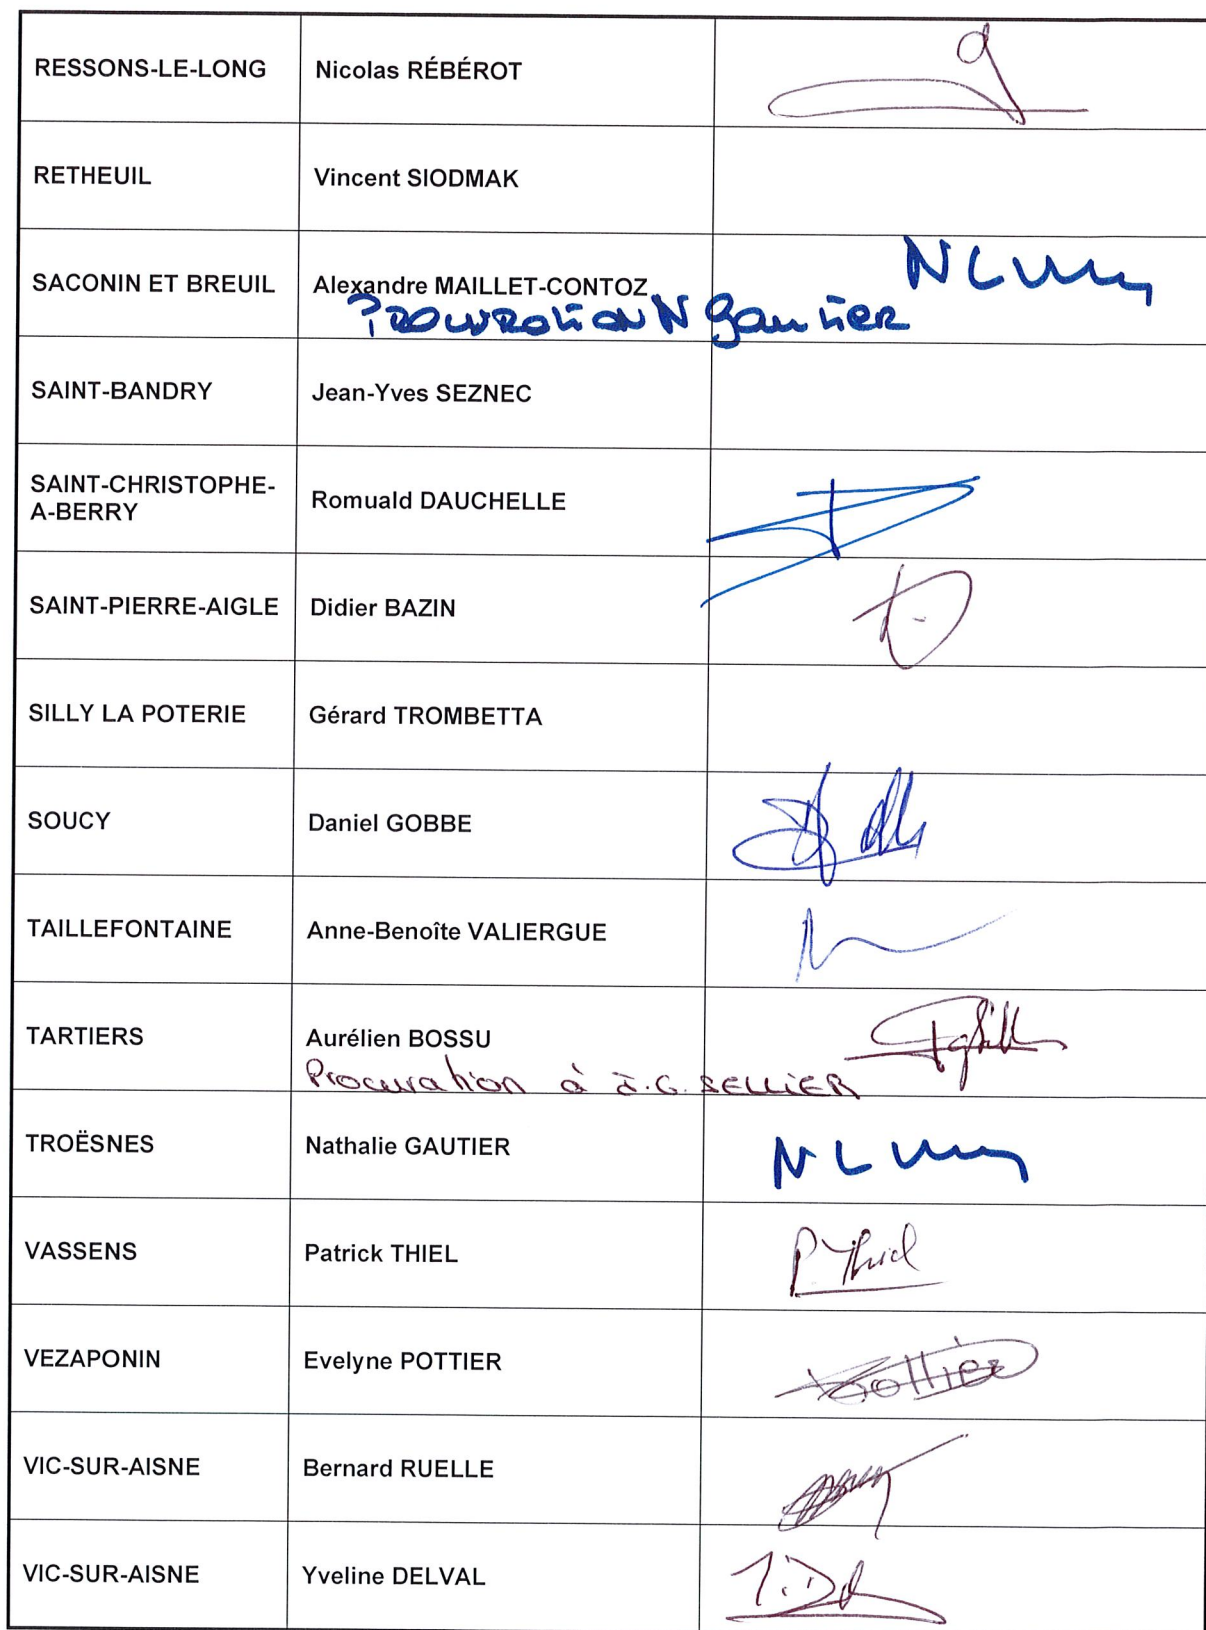 RESSONS-LE-LONG
Nicolas RÉBÉROT
RETHEUIL
Vincent SIODMAK
SACONIN ET BREUIL
Alexandre MAILLET-CONTOZ
PROCURATION N Gautier
SAINT-BANDRY
Jean-Yves SEZNEC
SAINT-CHRISTOPHE-
A-BERRY
Romuald DAUCHELLE
SAINT-PIERRE-AIGLE
Didier BAZIN
SILLY LA POTERIE
Gérard TROMBETTA
SOUCY
Daniel GOBBE
TAILLEFONTAINE
Anne-Benoîte VALIERGUE
TARTIERS
Aurélien BOSSU
Procuration à J.G. SELLIER
TROËSNES
Nathalie GAUTIER
VASSENS
Patrick THIEL
P. Thiel
VEZAPONIN
Evelyne POTTIER
VIC-SUR-AISNE
Bernard RUELLE
VIC-SUR-AISNE
Yveline DELVAL